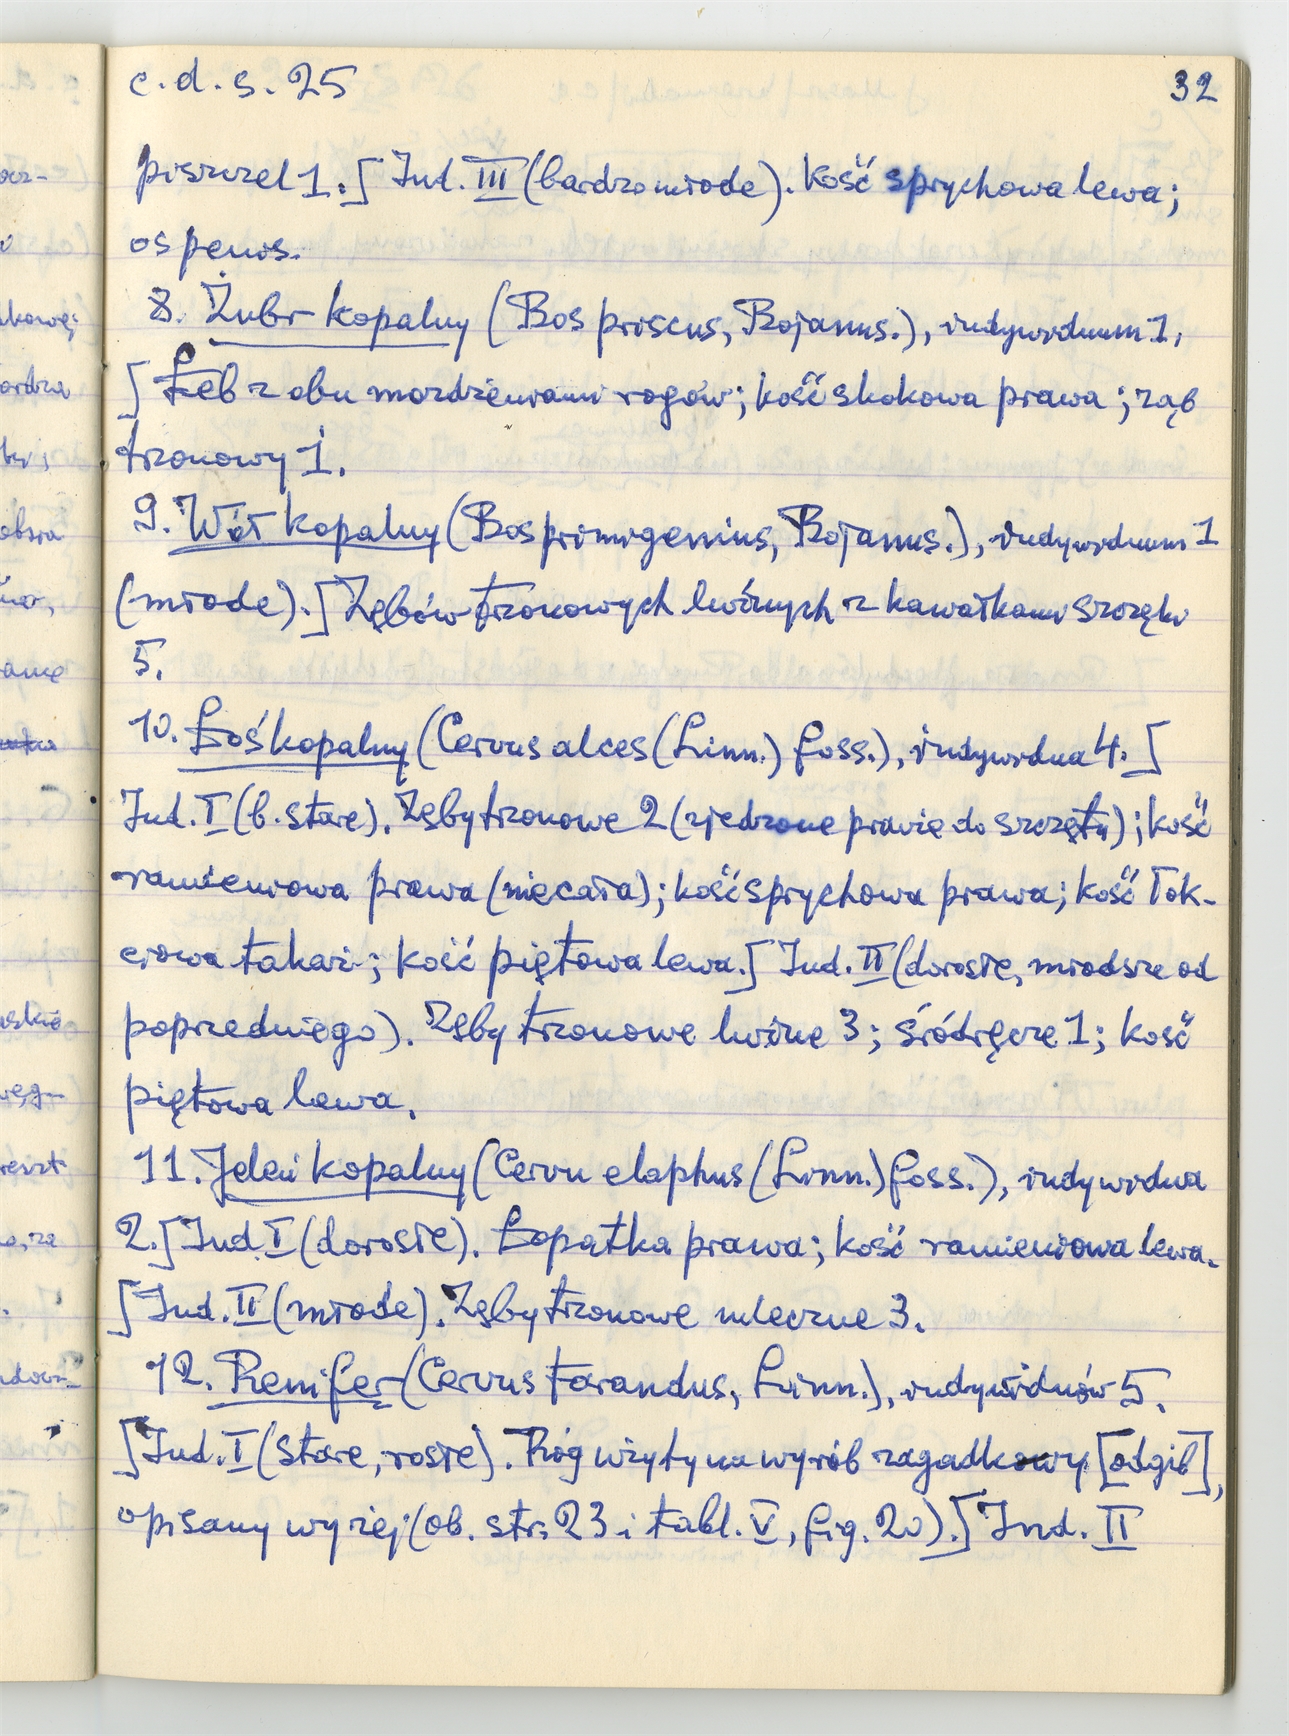 c.d.s. 25
32
piszczel 1.] Ind. III (bardzo młode). Kość sprychowa lewa;
os penis.
8. Żubr kopalny (Bos priscus, Bojanus.), indywiduum 1.
[Łeb z obu możdżeniami rogów; kość skokowa prawa; ząb
trzonowy 1.
9. Wół kopalny (Bos primigenius, Bojanus.), indywiduum 1
(młode).] Zębów trzonowych luźnych z kawałkami szczęki
5.
10. Łoś kopalny (Cervus alces (Linn.) foss.), indywidua 4.]
Ind. I (b. stare). Zęby trzonowe 2 (zjedzone prawie do szczętu); kość
ramieniowa prawa (niecała); kość sprychowa prawa; kość łok-
ciowa takaż; kość piętowa lewa.] Ind. II (dorosłe, młodsze od
poprzedniego). Zęby trzonowe luźne 3; śródręcze 1; kość
piętowa lewa.
11. Jeleń kopalny (Cervu elaphus (Linn.) foss.), indywidua
2.] Ind. I (dorosłe). Łopatka prawa; kość ramieniowa lewa.
[Ind. II (młode). Zęby trzonowe mleczne 3.
12. Renifer (Cervus tarandus, Linn.), indywiduów 5.
[Ind. I (stare, rosłe). Róg użyty na wyrób zagadkowy [odgib],
opisany wyżej (ob. str. 23 i tabl. V, fig. 20).] Ind. II